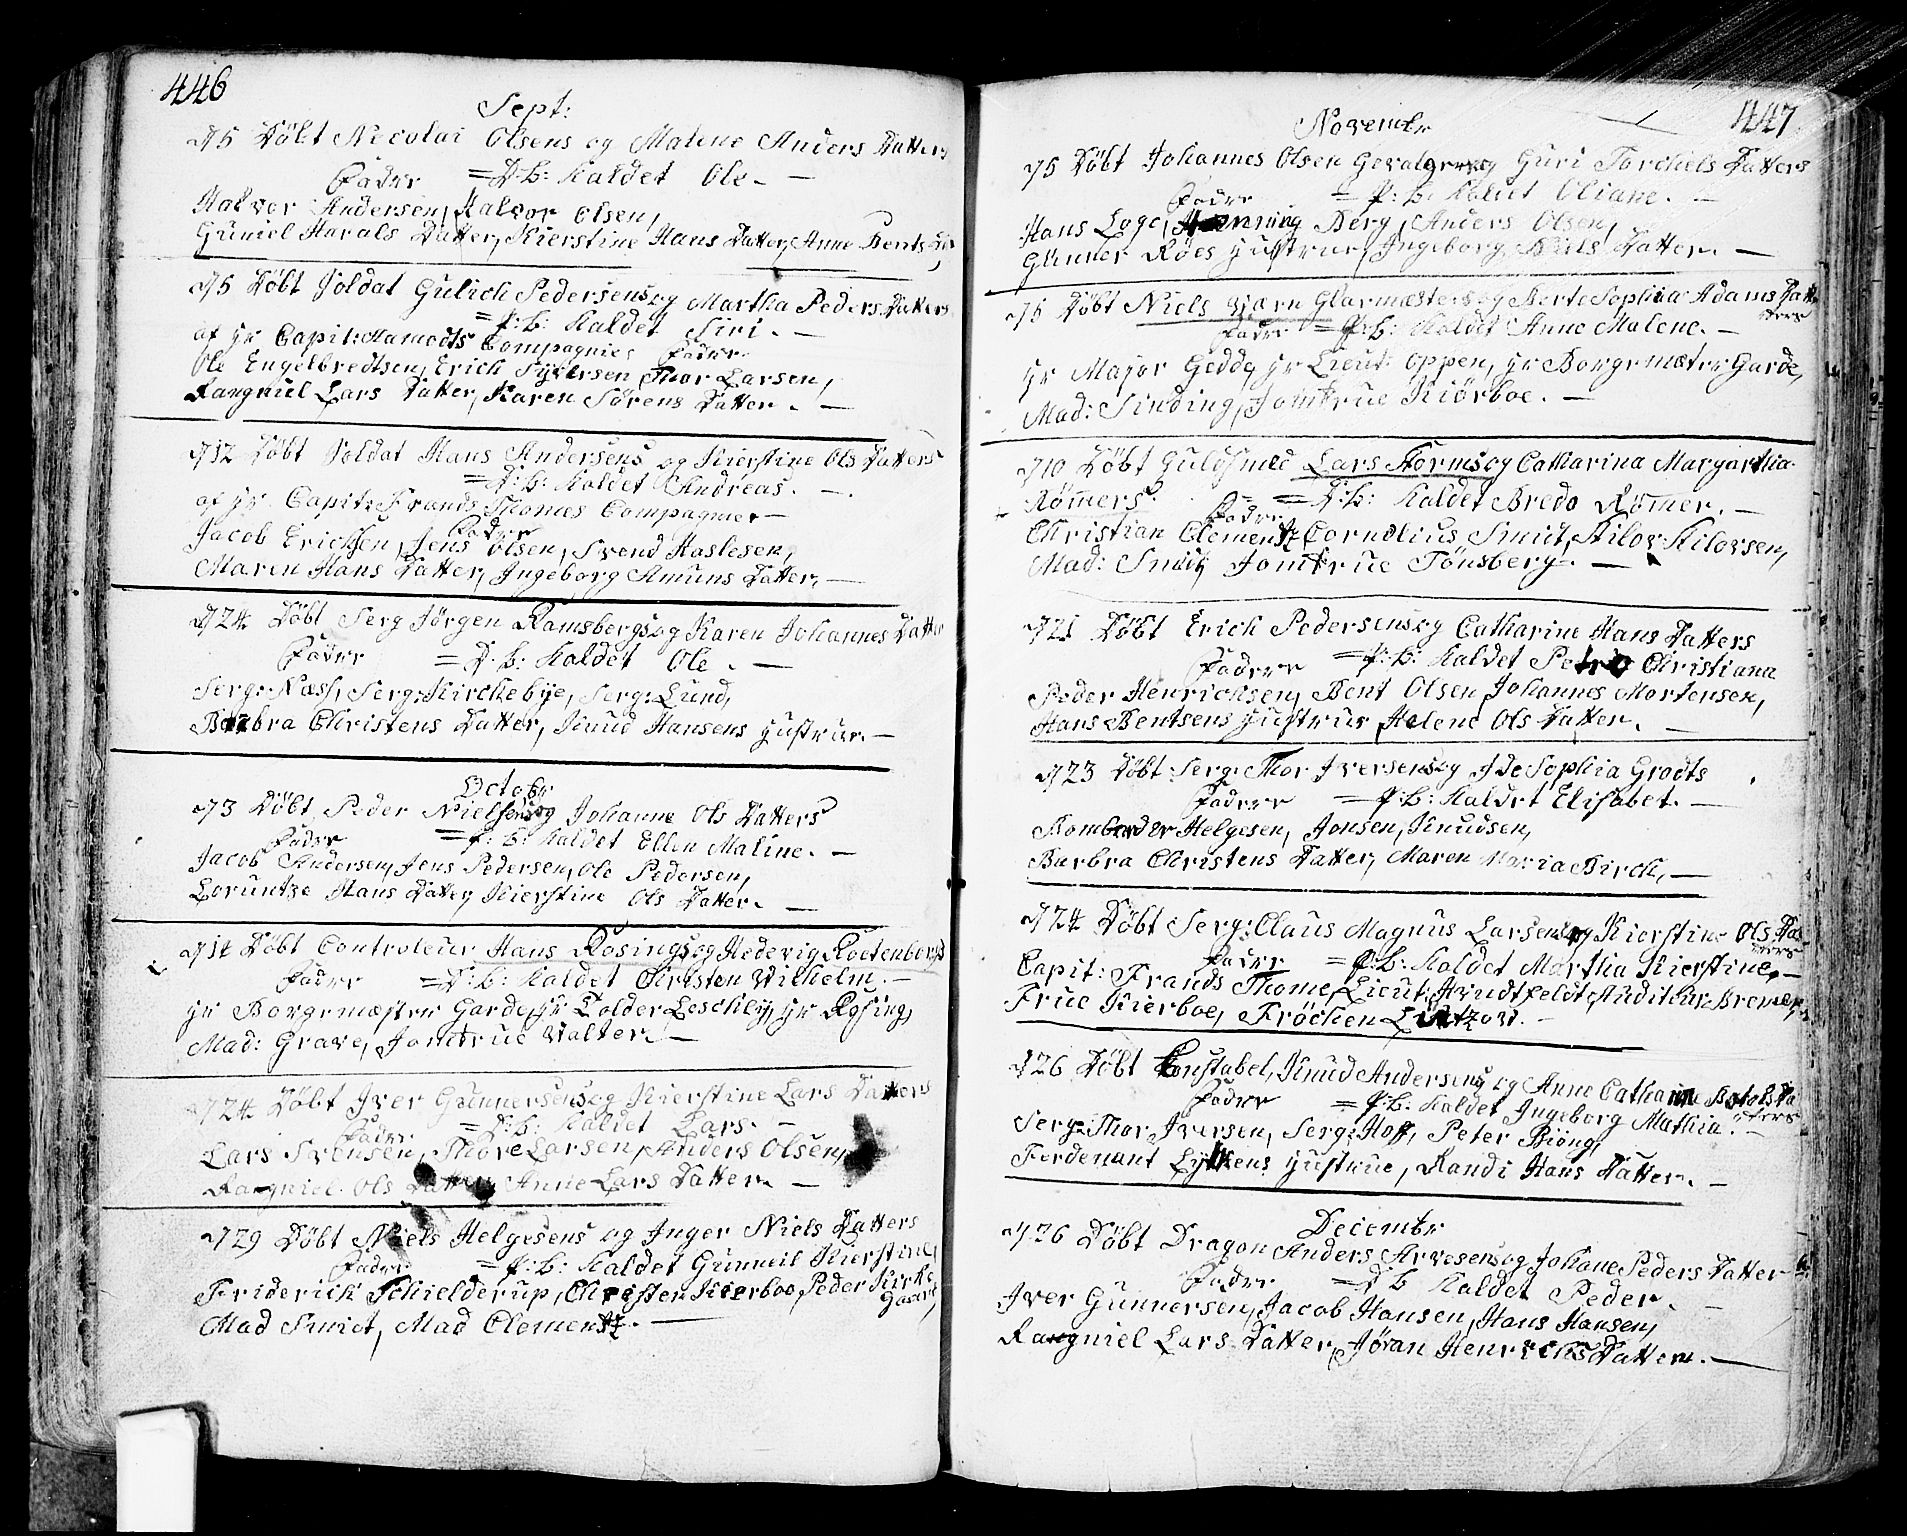 446
Sept:
D 5 Döbt Nicolai Olsens og Malene Anders Datters
Fadre = D: B: Kaldet Ole. —
Halvor Andersen, Halvor Olsen,
Guniel Harals Datter, Kierstine Hans Datter, Anne Bents
D 5 Döbt Soldat Gulich Pedersens og Martha Peders Datters
= P: B: Kaldet Siri. —
af Hr Capit: Hamodts Compagnies Fadre
Ole Engelbredtsen, Erich Syversen, Thor Larsen,
Rangniel Lars Datter, Karen Sörens Datter. —
D 12 Döbt Soldat Hans Andersens og Kierstine Ols Datters
= D: B: Kaldet Andreas. —
af Hr Capit: Frands Thomes Compagnie —
Fadre
Jacob Erichsen, Jens Olsen, Svend Haslesen,
Maren Hans Datter, Ingeborg Amuns Datter, —
D 24 Döbt Serg Jörgen Ramsbergs og Karen Johannes Datter
Fadre = D: B: Kaldet Ole. —
Serg: Næss, Serg: Kirchebye, Serg: Lund,
Barbra Christens Datter, Knud Hansens Hustrue. —
Octobr
D 3 Döbt Peder Nielsens og Johanne Ols Datters
Fadre = P: B: Kaldet Ellen Maline. —
Jacob Andersen, Jens Pedersen, Ole Pedersen,
Loruntze Hans Datter, Kierstine Ols Datter. —
D 14 Döbt Controleur Hans Rosings og Hedevig Roetenborgs
Fadre = D: B: Kaldet Christen Wilhelm. —
Hr Borgemæster Garde, Hr Tolder Leschly, Hr Rosing,
Mad: Grave, Jomfrue Walter. —
D 24 Döbt Iver Gunnersens og Kierstine Lars Datters
Fadre = D: B: Kaldet Lars. —
Lars Svensen, Thore Larsen, Anders Olsen,
Rangniel Ols Datter, Anne Lars Datter. —
D 29 Döbt Niels Helgesens og Inger Niels Datters
Fadre = P: B: Kaldet Gunneil Kierstine,
Friderich Schielderup, Christen Kierboe, Peder Kirke
gaard,
Mad Smidt, Mad Clementz. —
447
Novembr
D 5 Döbt Johannes Olsen og Guri Torchels Datters
Fadre = P: B: Kaldet Oliane. —
Hans Loge, Henning Berg, Anders Olsen,
Gunner Röes Hustrue, Ingeborg Niels Datter. —
D 5 Döbt Niels Biærn Glarmæsters og Berte Sophia Adams Dat
ters
Fadre = P: B: Kaldet Anne Malene. —
Hr Major Gedde, Hr Lieut: Oppen, Hr Borgemæster Garde,
Mad: Sinding, Jomfrue Kiörboe. —
D 10 Döbt Guldsmed Lars Storms og Catharina Margartha
Römers. = D: B: Kaldet Bredo Römer. —
Fadre
Christian Clementz, Cornelius Smidt, Kilov Kilovsen,
Mad: Smidt, Jomfrue Tönsberg. —
D 21 Döbt Erich Pedersens og Catharine Hans Datters
Fadre = P: B: Kaldet Petre Christiana
Peder Henrichsen, Bent Olsen, Johannes Mortensen,
Hans Bentsens Hustrue, Helene Ols Datter. —
D 23 Döbt Serg: Thor Iversens og Ide Sophia Grodts
Fadre = P: B: Kaldet Elisabet. —
Bomberder Helgesen, Jonsen, Knudsen,
Barbra Christens Datter, Maren Maria Birch, —
D 24 Döbt Serg: Claus Magnus Larsens og Kierstine Ols Dat
ters
Fadre = P: B: Kaldet Martha Kierstine, —
Capit: Frands Thome, Lieut: Arndtfeldt, Auditeur Bremer,
Frue Kierboe, Fröcken Lützow. —
D 26 Döbt Constabel, Knud Andersens og Anne Catharina Botols Da
tters
Fadre = P: B: Kaldet Ingeborg Mathia. —
Serg: Thor Iversen, Serg: Hoff, Peter Biöng,
Ferdenant Lytkens Hustrue, Randi Hans Datter. —
Decembr
D 26 Döbt Dragon Anders Arvesens og Johane Peders Datter
Fadre = D B Kaldet Peder. —
Iver Gunnersen, Jacob Hansen, Hans Hansen,
Rangniel Lars Datter, Jöran Henrichs Datter. —